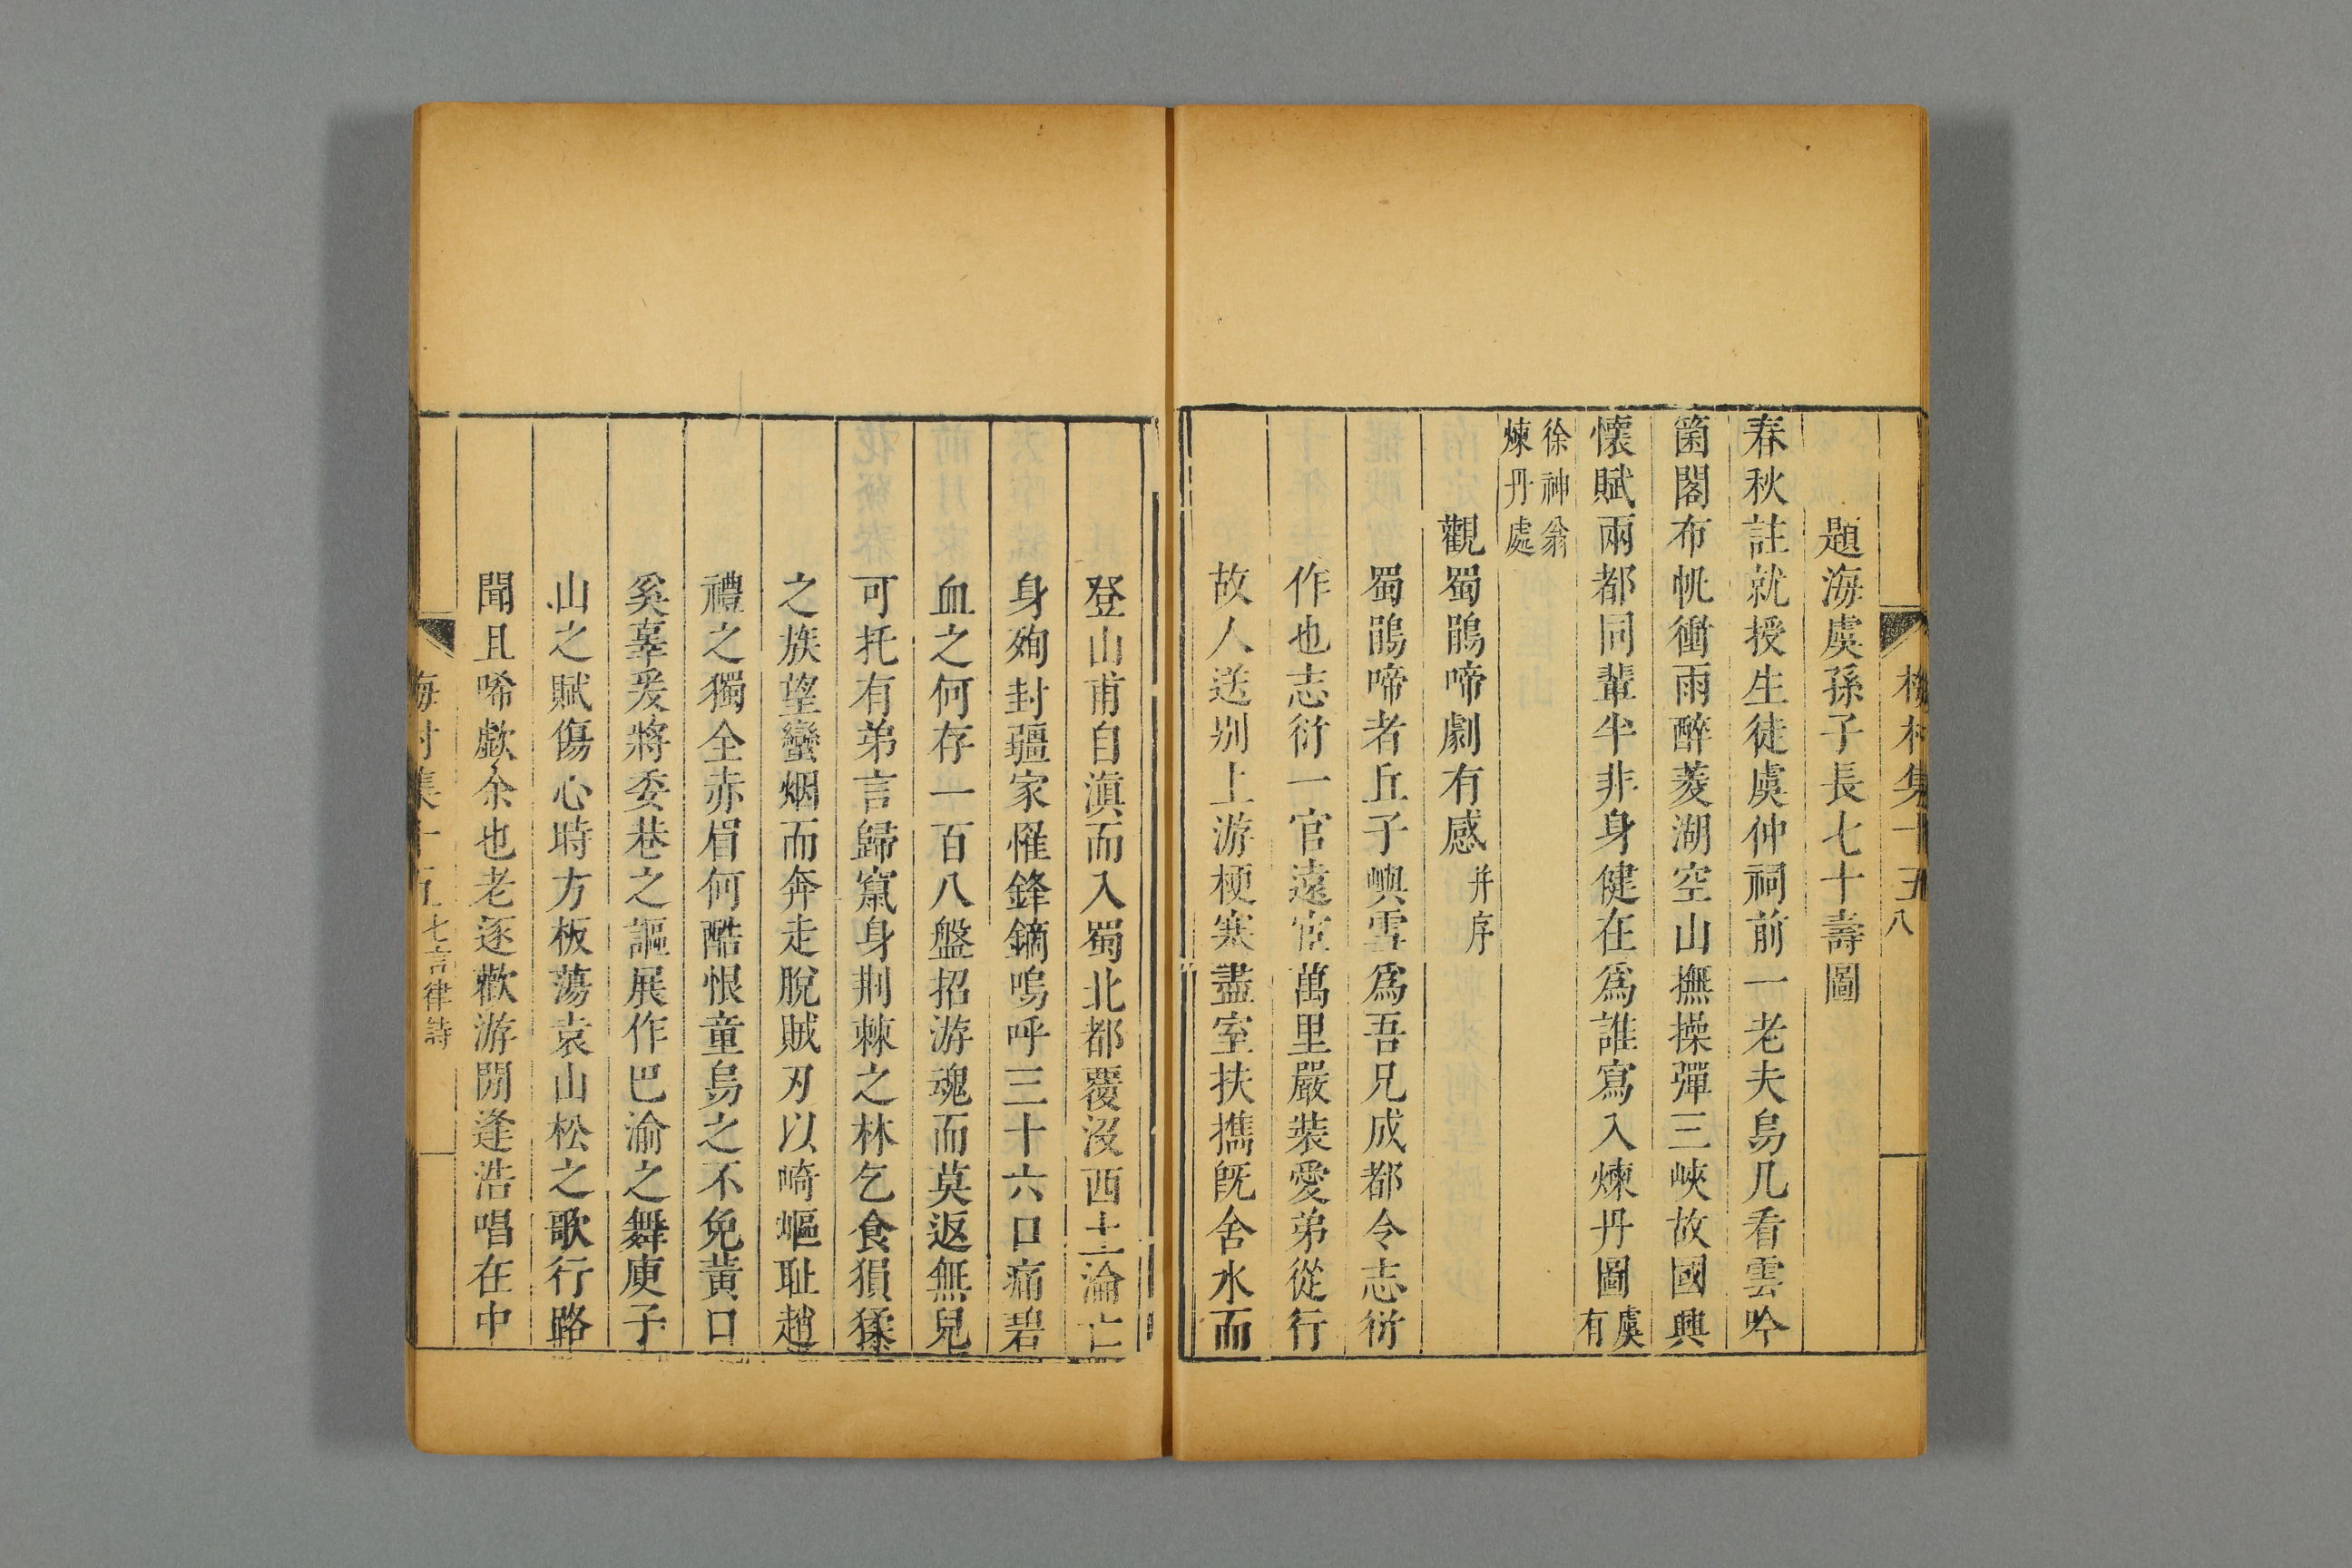 梅村集十五 八
題海虞孫子長七十壽圖
春秋註就授生徒虞仲祠前一老夫烏几看雲吟
箇閣布帆衝雨醉菱湖空山撫操彈三峽故國興
懷賦兩都同輩半非身健在爲誰寫入煉丹圖虞有
徐神翁煉丹處
觀蜀鵑啼劇有感并序
蜀鵑啼者丘子嶼雪爲吾兄成都令志衍
作也志衍一官遠宦萬里嚴裝愛弟從行
故人送别上游梗塞盡室扶攜旣舍水而
登山甫自滇而入蜀北都覆沒西土淪亡
身殉封疆家罹鋒鏑嗚呼三十六口痛碧
血之何存一百八盤招游魂而莫返無兒
可托有弟言歸竄身荆棘之林乞食猥猱
之族望蠻烟而奔走脫賊刃以崎嶇耻趙
禮之獨全赤眉何酷恨童烏之不免黃口
奚辜爰將委巷之謳展作巴渝之舞庾子
山之賦傷心時方板蕩袁山松之歌行路
聞且唏歔余也老逐歡游閒逢浩唱在中
梅村集十五 七言律詩